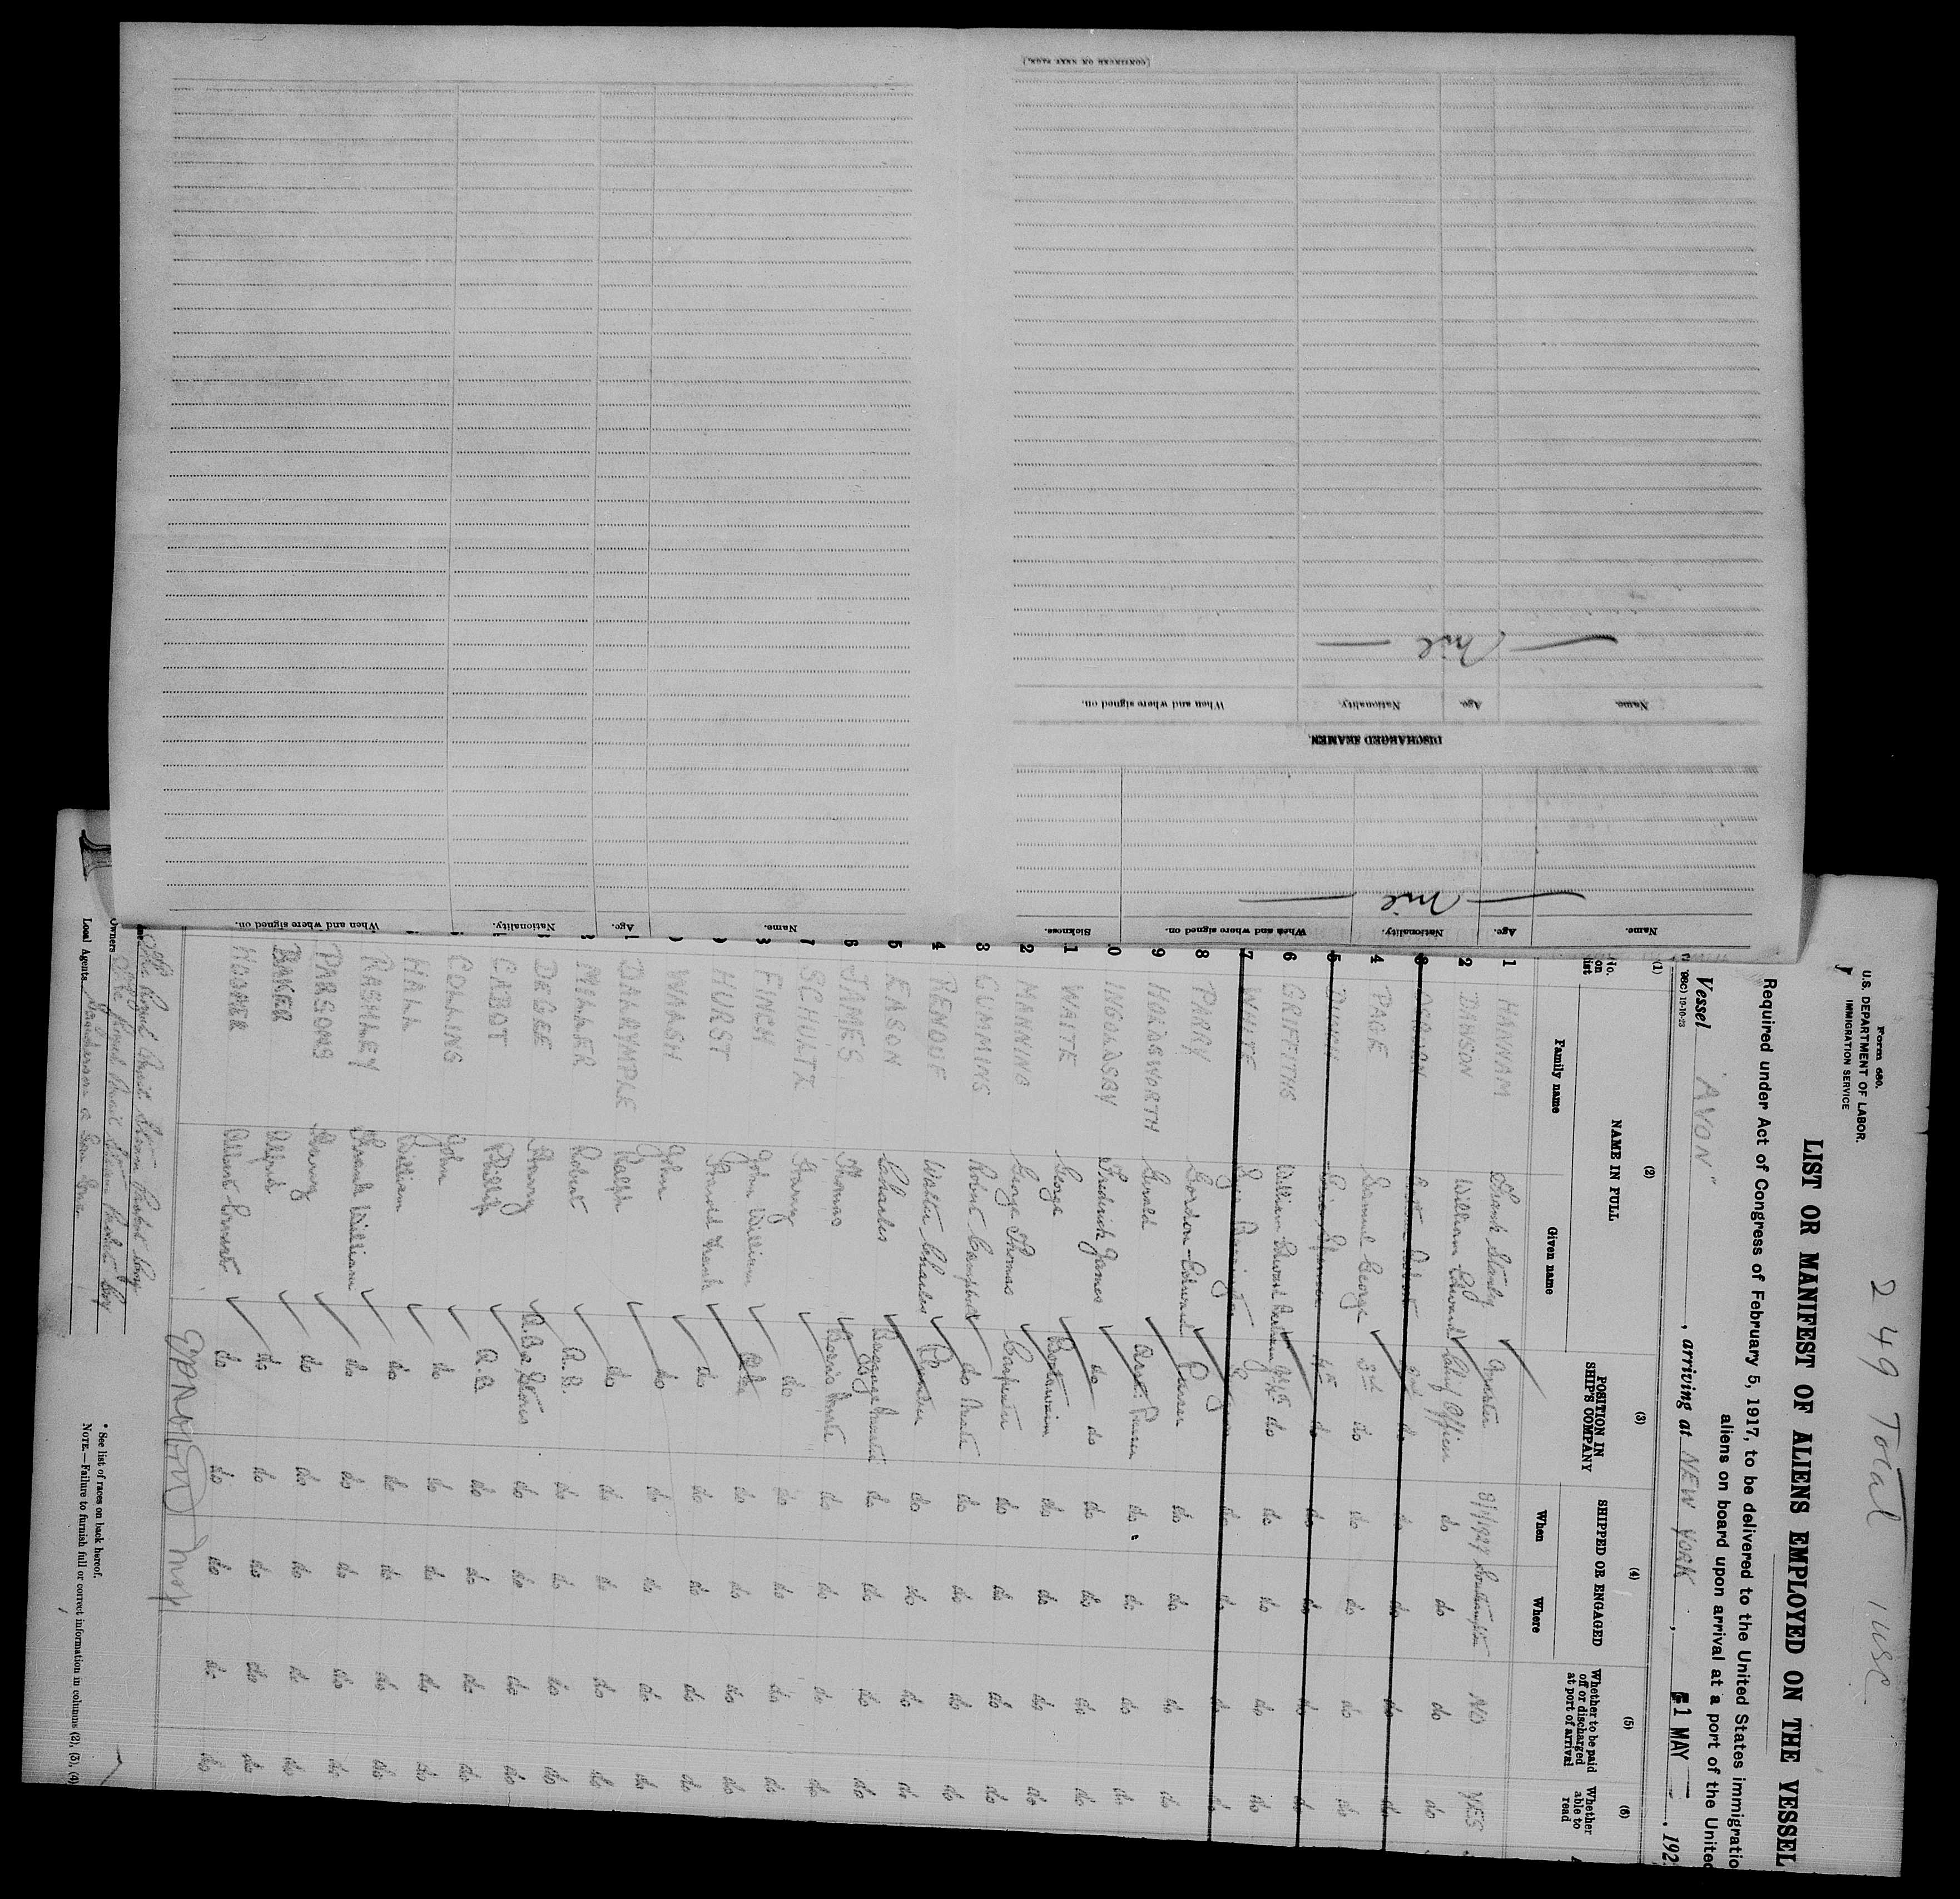 249 Total 1 USC
Form 680.
U.S. DEPARTMENT OF LABOR.
IMMIGRATION SERVICE
LIST OR MANIFEST OF ALIENS EMPLOYED ON THE VESSEL
Required under Act of Congress of February 5, 1917, to be delivered to the United States immigratio
aliens on board upon arrival at a port of the United
Vessel "AVON", arriving at NEW YORK, 1 MAY, 192
(1) (2) (3) (4) (5) (6)
No. on list NAME IN FULL POSITION IN SHIP'S COMPANY SHIPPED OR ENGAGED Whether to be paid off or discharged at port of arrival Whether able to read
Family name Given name When Where
1 HANNAM Frank Stanley Master Southampton NO YES
2 DAWSON William Edward Chief Officer do do do do
3 Robert 2nd do do do do do
4 PAGE Samuel George 3rd do do do do do
5 4th do do do do do
6 GRIFFITHS William Edward do do do do do
7 WHITE do do do do
8 PARRY Gordon Edward Purser do do do do
9 HOLDSWORTH Gerald Asst. Purser do do do do
0 INGOLDSBY Frederick James do do do do do do
1 WAITE George Boatswain do do do do
2 MANNING George Thomas Carpenter do do do do
3 CUMMINS Robert Campbell do Mate do do do do
4 RENOUF Walter Charles do do do do
5 EASON Charles Baggage Master do do do do
6 JAMES Thomas Bosn's Mate do do do do
7 SCHULTZ Harry do do do do do
FINCH John William do do do do
HURST Harold Frank do do do do do
WASH John do do do do do
DALRYMPLE Ralph do do do do do
MILLER Robert A.B. do do do do
DEGEE Henry A.B. & Stores do do do do
CABOT Phillip A.B. do do do do
COLLING John do do do do do
HALL William do do do do do
RASHLEY Frank William do do do do do
PARSONS Harry do do do do do
BAKER Alfred do do do do do
HOOPER Albert Ernest do do do do do
The Royal Mail Steam Packet Coy
Owners The Royal Mail Steam Packet Coy
Local Agents Sanderson & Son Inc.
* See list of races on back hereof.
NOTE.—Failure to furnish full or correct information in columns (2), (3), (4)
Name. Age. Nationality. When and where signed on. Sickness.
— Nil —
DISCHARGED SEAMEN.
Name. Age. Nationality. When and where signed on.
— Nil —
[CONTINUED ON NEXT PAGE.]
Name. Age. Nationality. When and where signed on.